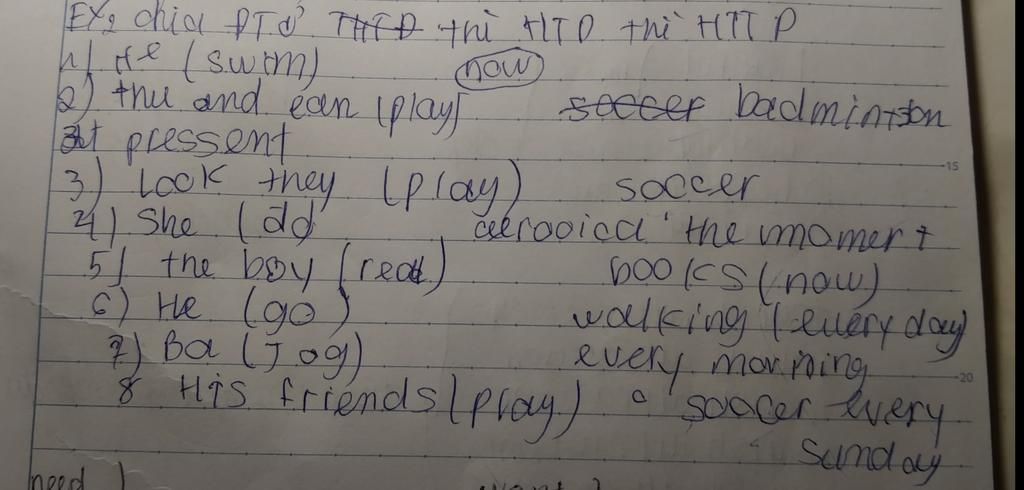 EX2 chia ĐTở thì HTD thì HTTP
1) He (swim) now
2) thu and ean (play) badminton
at pressent
3) Look they (play) soccer
4) She (do the moment
5) the boy (read) books (now)
6) He (go) walking (every day)
7) Ba (Jog) every morning
8 His friends (play) soccer every
sunday
need )
want ?